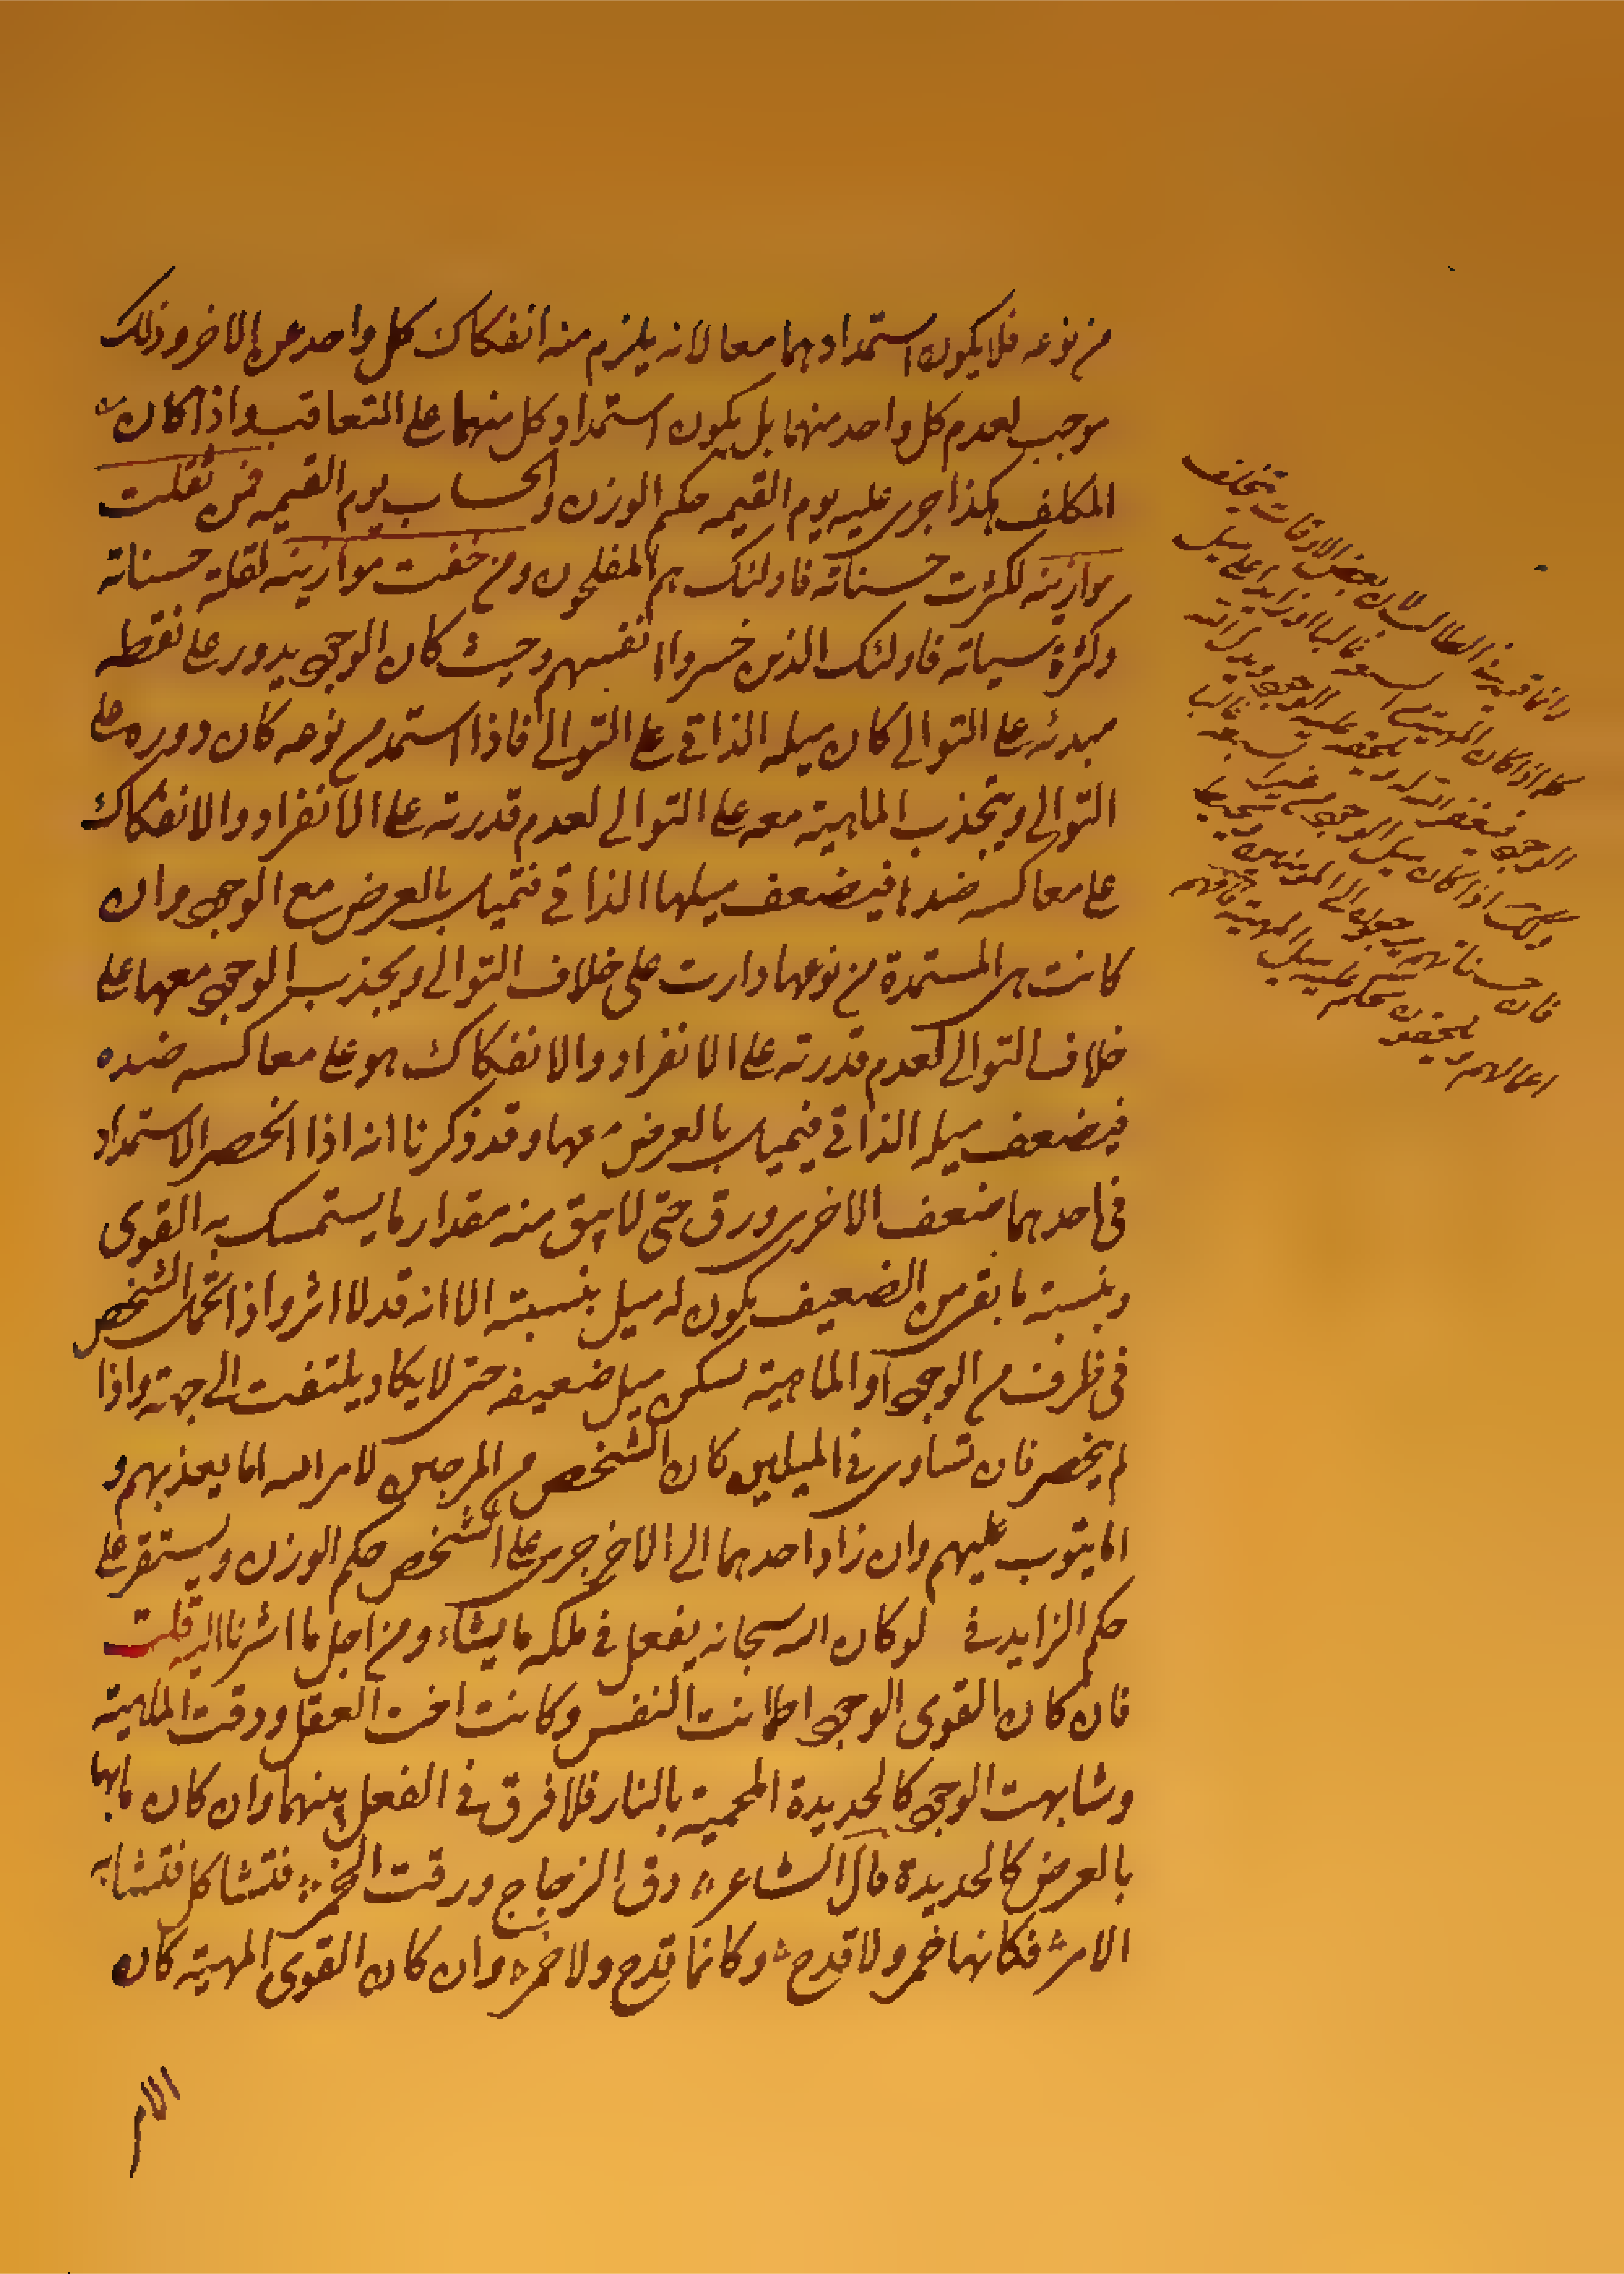 من نوعه فلا يكون استمدادهما معا لانه يلزم منه انفكاك كل واحد عن الاخر وذلك
موجب لعدم كل واحد منهما بل يكون استمداد كل منهما على المتعاقب واذا كان
المكلف هكذا جرى عليه يوم القيمه حكم الوزن والحساب يوم القيمه فمن ثقلت
موازينه لكثرت حسناته فاولئك هم المفلحون ومن خفت موازينه لقلة حسناته
وكثرة سيئاته فاولئك الذين خسروا انفسهم وحيث كان الوجود يدور على نقطه
مبدئه على التوالي كان ميله الذاتي على التوالي فاذا استمد من نوعه كان دوره على
التوالي ويجذب الماهية معه على التوالي لعدم قدرته على الانفراد والانفكاك
على معاكسه ضدها فيضعف ميلها الذاتي فتميل بالعرض مع الوجود وان
كانت هي المستمدة من نوعها دارت على خلاف التوالي ويجذب الوجود معها على
خلاف التوالي لعدم قدرته على الانفراد والانفكاك هو على معاكسه ضده
فيضعف ميله الذاتي فيميل بالعرض معها وقد ذكرنا انه اذا انحصر الاستمداد
في احدهما ضعف الاخر ورق حتى لا يبق منه مقدار ما يستمسك به القوى
وبنسبة ما بقى من الضعيف يكون له ميل بنسبته الا انه قد لا اثر واذا الشخص
في ظرف من الوجود او الماهية لسكن ميل ضعيفه حتى لا يكاد يلتفت الى جهته واذا
لم ينحصر فان تساوى في الميلين كان الشخص من المرجين لامر الله اما يعذبهم و
اما يتوب عليهم وان زاد احدهما الى الاخر جرى على الشخص حكم الوزن ويستقر على
حكم الزايد في لو كان الله سبحانه يفعل في ملكه ما يشاء ومن اجل ما اشرنا اليه قلت
فان كان القوى الوجود اطمانت النفس وكانت اخت العقل ودقت الماهية
وشابهت الوجود كالحديدة المحمية بالنار فلا فرق في الفعل بينهما وان كان مابها
بالعرض كالحديدة قال الشاعر رق الزجاج ورقت الخمر فتشاكل فتشابه
الامر فكانها خمر ولا قدح وكانما قدح ولا خمر وان كان القوى المهية كان
وانما قيدنا الطالب لان بعض الاوقات يختلف
كما اذا كان المهية غالبا او زايدا على ميل
الوجود فيغفر الله له ويلحقه عليه الوجود ويبدل الله
وكذلك اذا كان ميل الوجود من غير غالبا
فان حسناتهم يرجعون الى المؤمنين
اعمالهم ويلحقون بحكم عليه ميل المهية
الام